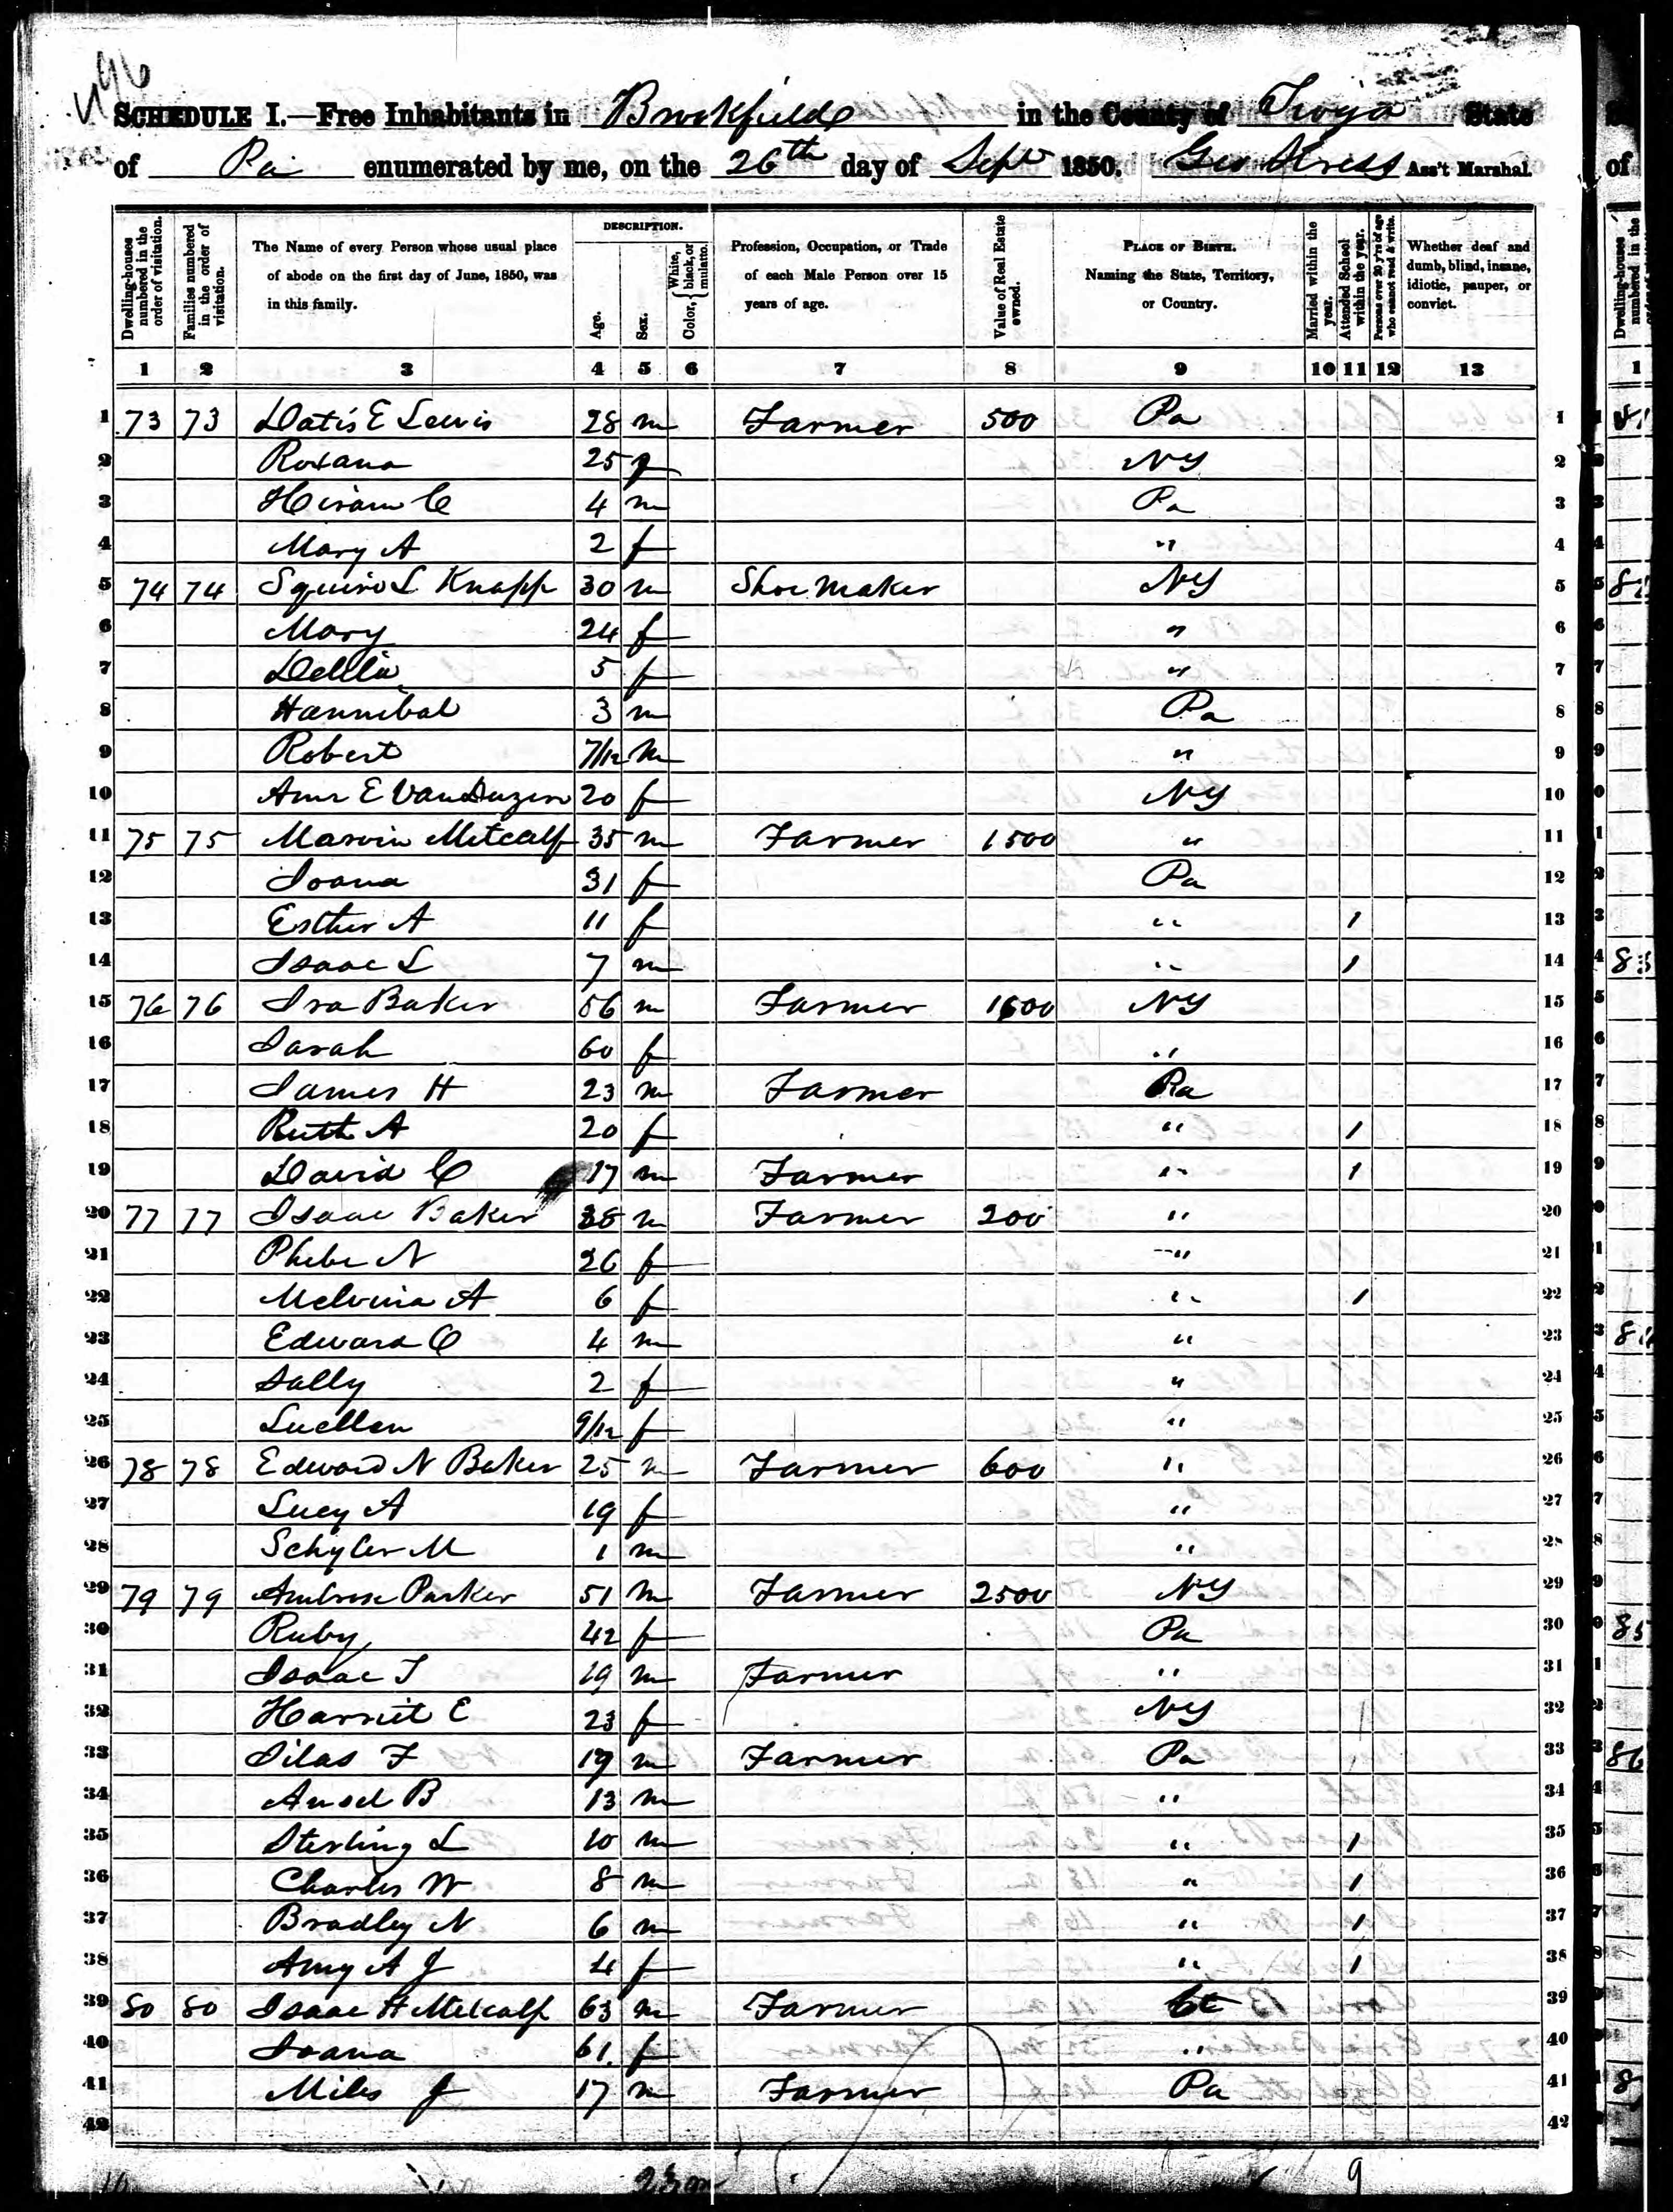 496
SCHEDULE I.—Free Inhabitants in Brookfield in the County of Tioga State
of Pa enumerated by me, on the 26th day of Sept 1850. Geo Hress Ass't Marshal.
Dwelling-houses numbered in the order of visitation.
Families numbered in the order of visitation.
The Name of every Person whose usual place of abode on the first day of June, 1850, was in this family.
DESCRIPTION.
Age.
Sex.
Color, { White, black, or mulatto.
Profession, Occupation, or Trade of each Male Person over 15 years of age.
Value of Real Estate owned.
PLACE OF BIRTH. Naming the State, Territory, or Country.
Married within the year.
Attended School within the year.
Persons over 20 y'rs of age who cannot read & write.
Whether deaf and dumb, blind, insane, idiotic, pauper, or convict.
1 2 3 4 5 6 7 8 9 10 11 12 13
1 73 73 E Lewis 28 m Farmer 500 Pa 1
2 Roxana 25 f NY 2
3 Hiram C 4 m Pa 3
4 Mary A 2 f " 4
5 74 74 Squire L Knapp 30 m Shoe Maker NY 5
6 Mary 24 f " 6
7 Delila 5 f " 7
8 Hannibal 3 m Pa 8
9 Robert 7/12 m " 9
10 Ann E VanDuzen 20 f NY 10
11 75 75 Marvin Metcalf 35 m Farmer 1500 " 11
12 Ioana 31 f Pa 12
13 Esther A 11 f " 1 13
14 Isaac L 7 m " 1 14
15 76 76 Ira Baker 56 m Farmer 1600 NY 15
16 Sarah 60 f " 16
17 James H 23 m Farmer Pa 17
18 Ruth A 20 f " 1 18
19 David C 17 m Farmer " 1 19
20 77 77 Isaac Baker 28 m Farmer 200 " 20
21 Phebe N 26 f " 21
22 Melvina A 6 f " 1 22
23 Edward O 4 m " 23
24 Sally 2 f " 24
25 Luellen 9/12 f " 25
26 78 78 Edward N Baker 25 m Farmer 600 " 26
27 Lucy A 19 f " 27
28 Schyler M 1 m " 28
29 79 79 Ambrose Parker 51 m Farmer 2500 NY 29
30 Ruby 42 f Pa 30
31 Isaac T 19 m Farmer " 31
32 Harriet E 23 f NY 32
33 Silas F 17 m Farmer Pa 33
34 Ansel B 13 m " 34
35 Sterling L 10 m " 1 35
36 Charles W 8 m " 1 36
37 Bradley N 6 m " 1 37
38 Amy A J 4 f " 1 38
39 80 80 Isaac H Metcalf 63 m Farmer Ct 39
40 Ioana 61 f " 40
41 Miles J 17 m Farmer Pa 41
42 42
9